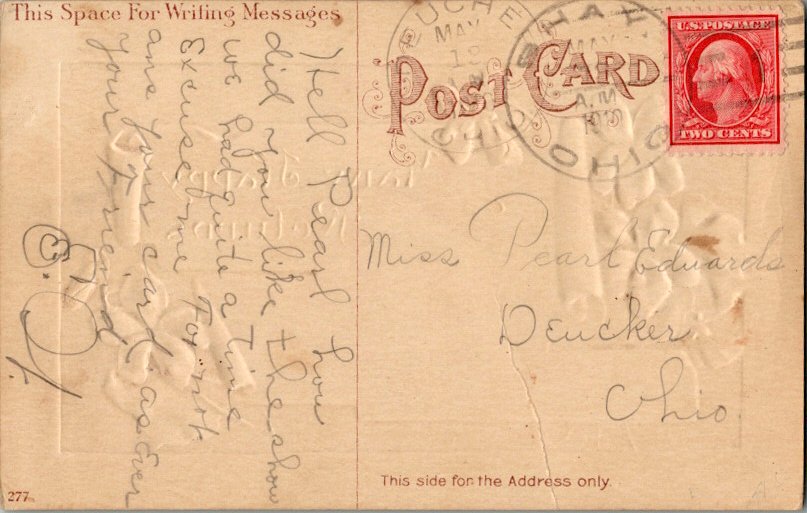 This Space For Writing Messages
Hell Pearl how
did you like the show
we had quite a time
Excuse me For not
ans your card as Ever
your Friend
POST CARD
EUCHE
MAY
OHIO
SHAW
MAY
A.M
OHIO
U.S. POSTAGE
TWO CENTS
Miss Pearl Eduards
Deucker
Ohio.
This side for the Address only.
277